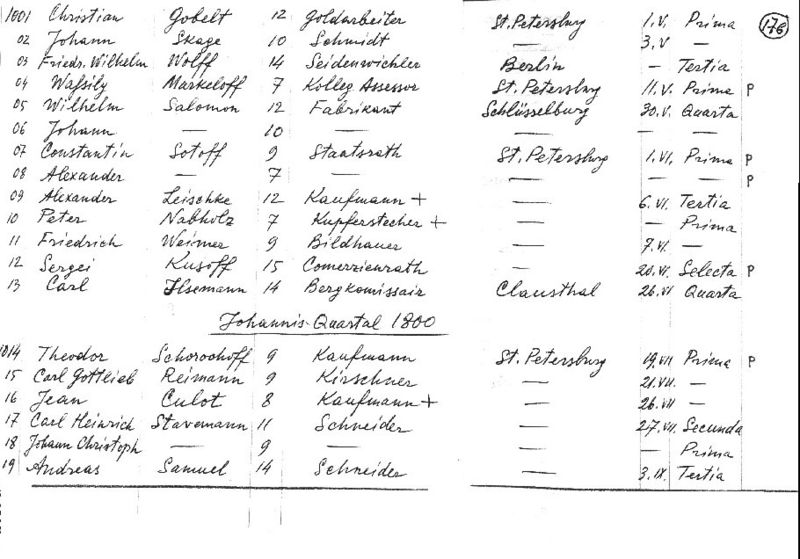 1001 Christian Gobelt 12 Goldarbeiter St. Petersburg 1.V. Prima 176
02 Johann Skage 10 Schmidt — 3.V —
03 Friedr. Wilhelm Wolff 14 Seidenwichler Berlin — Tertia
04 Waßily Markeloff 7 Kolleg Assessor St. Petersburg 11.V. Prima P
05 Wilhelm Salomon 12 Fabrikant Schlüsselburg 30.V. Quarta
06 Johann — 10 — — — —
07 Constantin Sotoff 9 Staatsrath St. Petersburg 1.VI. Prima P
08 Alexander — 7 — — — — P
09 Alexander Leischke 12 Kaufmann + — 6.VI. Tertia
10 Peter Nabholz 7 Kupferstecher + — — Prima
11 Friedrich Weimer 9 Bildhauer — 7.VI. —
12 Sergei Kusoff 15 Comerzienrath — 20.VI. Selecta P
13 Carl Ilsemann 14 Bergkomissair Clausthal 26.VI Quarta
Johannis-Quartal 1800
1014 Theodor Schorochoff 9 Kaufmann St. Petersburg 19.VII Prima P
15 Carl Gottlieb Reimann 9 Kirschner — 21.VII. —
16 Jean Culot 8 Kaufmann + — 26.VII —
17 Carl Heinrich Stavemann 11 Schneider — 27.VII. Secunda
18 Johann Christoph — 9 — — — Prima
19 Andreas Samuel 14 Schneider — 3.IX. Tertia